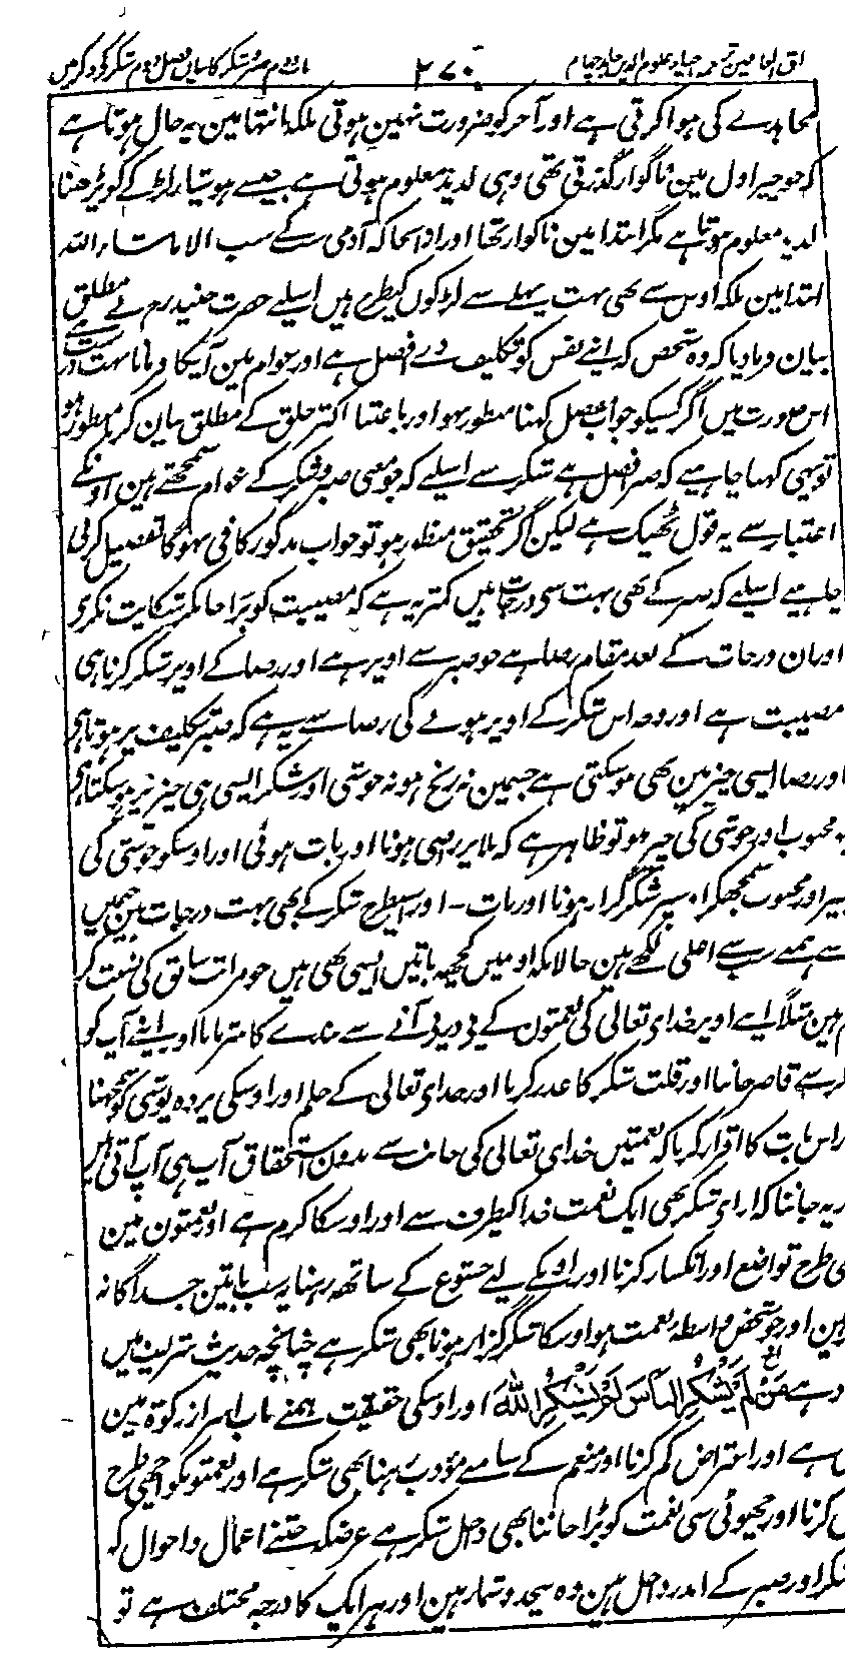 مذاق العارفین ترجمہ احیاء علوم الدین جلد چہارم ۲۷۰ باب دوم صبر و شکر کا بیان فصل دوم شکر کے ذکر میں
مجاہدے کی ہوا کرتی ہے اور آخر کو ضرورت نہین ہوتی بلکہ انتہا مین یہ حال ہوتا ہے
کہ جو چیز اول مین ناگوار گذرتی تھی وہی لذیذ معلوم ہوتی ہے جیسے ہوشیار لڑکے کو پڑھنا
لذیذ معلوم ہوتا ہے مگر ابتدا مین ناگوار تھا اور ازانجا کہ آدمی سب کے سب الا ماشاء اللہ
ابتدا مین بلکہ اوس سے بھی بہت پہلے سے لڑکوں کیطرح ہیں اسلیے حضرت جنید رح نے مطلق
بیان فرمادیا کہ وہ شخص کہ اپنے نفس کو تکلیف دے افضل ہے اور عوام مین آپکا فرمانا بہت درست ہے
اس صورت میں اگر کسیکو جواب مفصل کہنا منظور نہو اور باعتبار اکثر خلق کے مطلق بیان کرنا منظور ہو
تو یہی کہنا چاہیے کہ صبر افضل ہے شکر سے اسلیے کہ جو معنی صبر و شکر کے عوام سمجھتے ہین اونکے
اعتبار سے یہ قول ٹھیک ہے لیکن اگر تحقیق منظور ہو تو جواب مذکور کافی نہوگا تفصیل کرنی
چاہیے اسلیے کہ صبر کے بھی بہت سی درجات ہیں کمتر یہ ہے کہ مصیبت کو برا جانکر شکایت نکرے
اور ان درجات کے بعد مقام رضا ہے جو صبر سے اوپر ہے اور رضا کے اوپر شکر کرنا ہی
مصیبت ہے اور وجہ اس شکر کے اوپر ہونے کی رضا سے یہ ہے کہ صبر تکلیف پر ہوتا ہی
اور رضا ایسی چیز مین بھی ہوسکتی ہے جسمین نہ رنج ہو نہ خوشی اور شکر ایسی ہی چیز پر ہوسکتا ہی
محبوب اور خوشی کی چیز ہو تو ظاہر ہے کہ بلا پر راضی ہونا اور بات ہوئی اور اوسکو خوشی کی
اور محبوب سمجھکر اوسپر شکر گزار ہونا اور بات - اور اسیطرح شکر کے بھی بہت درجات ہین جنمیں
سے ہمنے سب سے اعلی لکھے ہین حالانکہ اونمیں کچھ باتیں ایسی بھی ہیں جو مراتب سابق کی نسبت کر
ہین مثلاً اپنے اوپر خدای تعالی کی نعمتون کے پی در پی آنے سے بندے کا شرمانا اور اپنے آپ کو
سے قاصر جاننا اور قلت شکر کا عذر کرنا اور خدای تعالی کے حلم اور اوسکی پردہ پوشی کو سمجھنا
اس بات کا اقرار کرنا کہ نعمتیں خدای تعالی کی جانب سے بدون استحقاق آپ ہی آپ آتی ہین
یہ جاننا کہ ادای شکر بھی ایک نعمت خدا کیطرف سے اور اوسکا کرم ہے اور نعمتون مین
طرح تواضع اور انکسار کرنا اور اونکے لیے خشوع کے ساتھ رہنا یہ سب باتین جداگانہ
ہین اور جو شخص واسطہ نعمت ہو اوسکا شکر گزار ہونا بھی شکر ہے چنانچہ حدیث شریف میں
ہے مَنْ لَمْ یَشْکُرِ النَّاسَ لَمْ یَشْکُرِ اللهَ اور اوسکی حقیقت ہمنے باب اسرار زکوٰۃ مین
ہے اور اعتراض کم کرنا اور منعم کے سامنے مؤدب رہنا بھی شکر ہے اور نعمتونکو اچھی طرح
کرنا اور چھوٹی سی نعمت کو بڑا جاننا بھی داخل شکر ہے غرضکہ جتنے اعمال و احوال کہ
شکر اور صبر کے اندر داخل ہین وہ بیحد و شمار ہین اور ہر ایک کا درجہ مختلف ہے تو